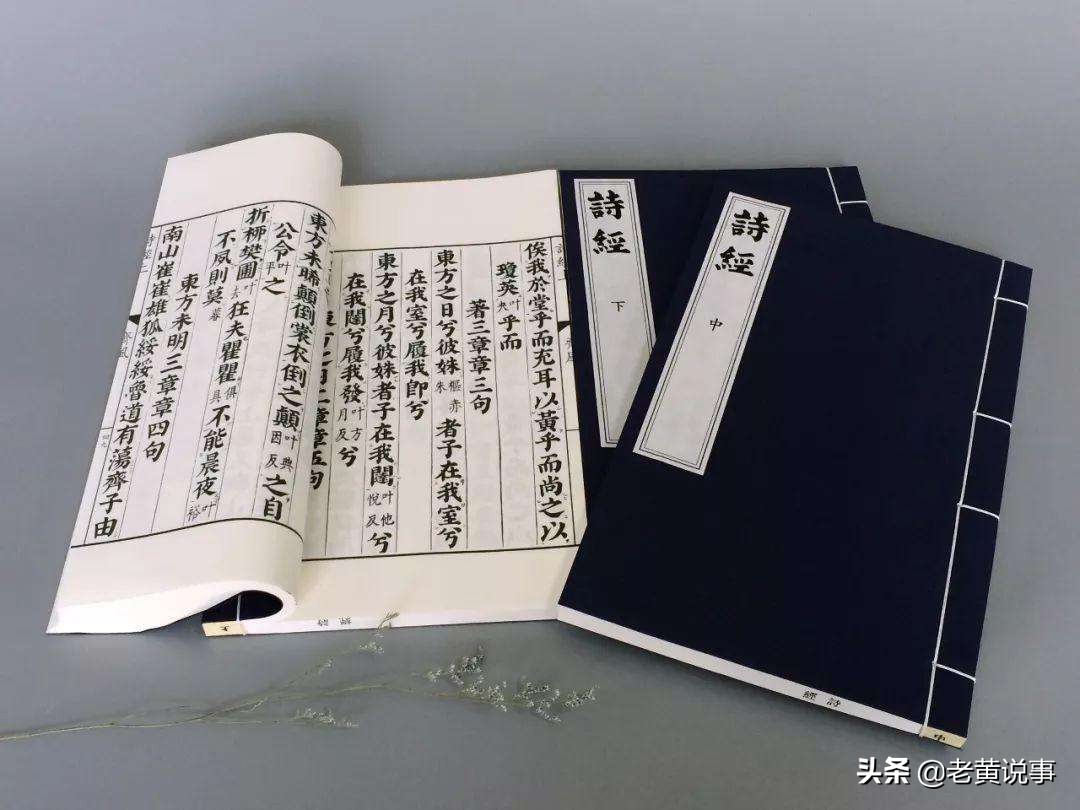 詩經
中
詩經
下
俟我於堂乎而充耳以黃乎而尚之以
瓊英叶央乎而
著三章章三句
東方之日兮彼姝赤樞朱者子在我室兮
在我室兮履我即兮
東方之月兮彼姝者子在我闥叶他悅反兮
在我闥兮履我發叶方月反兮
二章章五句
東方未晞顛倒裳衣倒之顛叶典因反之自
公令叶平之
折柳樊圃叶去狂夫瞿瞿俱具不能晨夜叶裕
不夙則莫暮
東方未明三章章四句
南山崔崔雄狐綏綏魯道有蕩齊子由
詩經
上
詩經
中
头条 @老黄说事